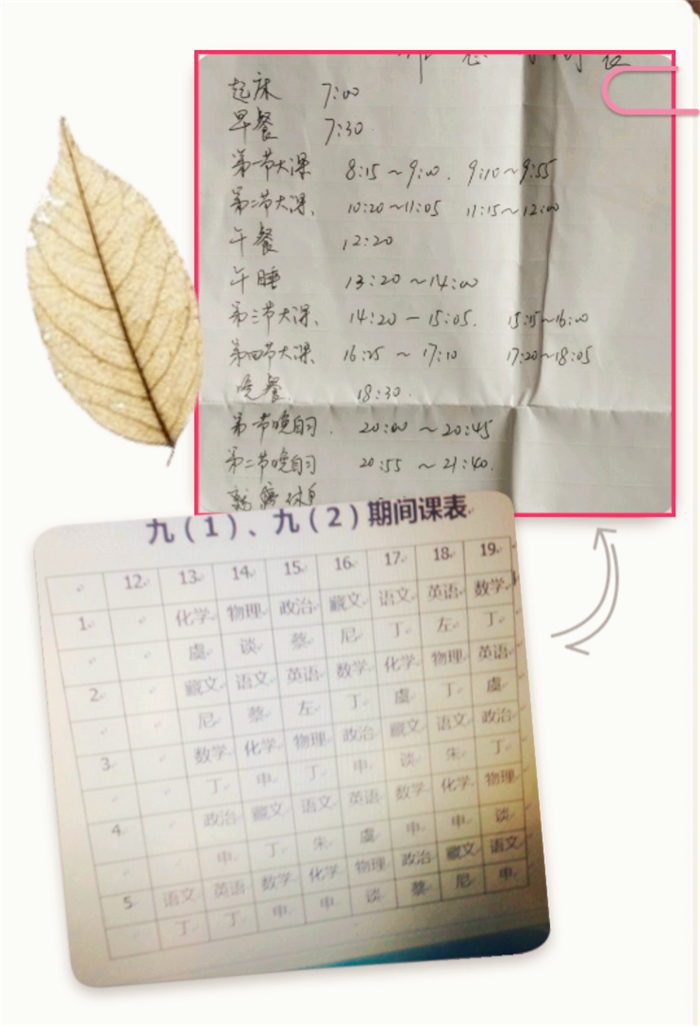 作息时间表
起床 7:00
早餐 7:30
第一节大课 8:15~9:00. 9:10~9:55
第二节大课、 10:20~11:05 11:15~12:00
午餐 12:20
午睡 13:20~14:00
第三节大课、 14:20-15:05. 15:15~16:00
第四节大课、 16:25~17:10 17:20~18:05
晚餐. 18:30.
第一节晚自习. 20:00~20:45
第二节晚自习 20:55~21:40.
九(1)、九(2)期间课表
12 13 14 15 16 17 18 19
1 化学 物理 政治 藏文 语文 英语 数学
虞 谈 蔡 尼 丁 左 丁
2 藏文 语文 英语 数学 化学 物理 英语
尼 蔡 左 丁 虞 丁 虞
3 数学 化学 物理 政治 藏文 语文 政治
丁 申 丁 申 谈 朱 丁
4 政治 藏文 语文 英语 数学 化学 物理
申 丁 朱 虞 申 申 谈
5 语文 英语 数学 化学 物理 政治 藏文 语文
丁 丁 申 申 谈 蔡 尼 申